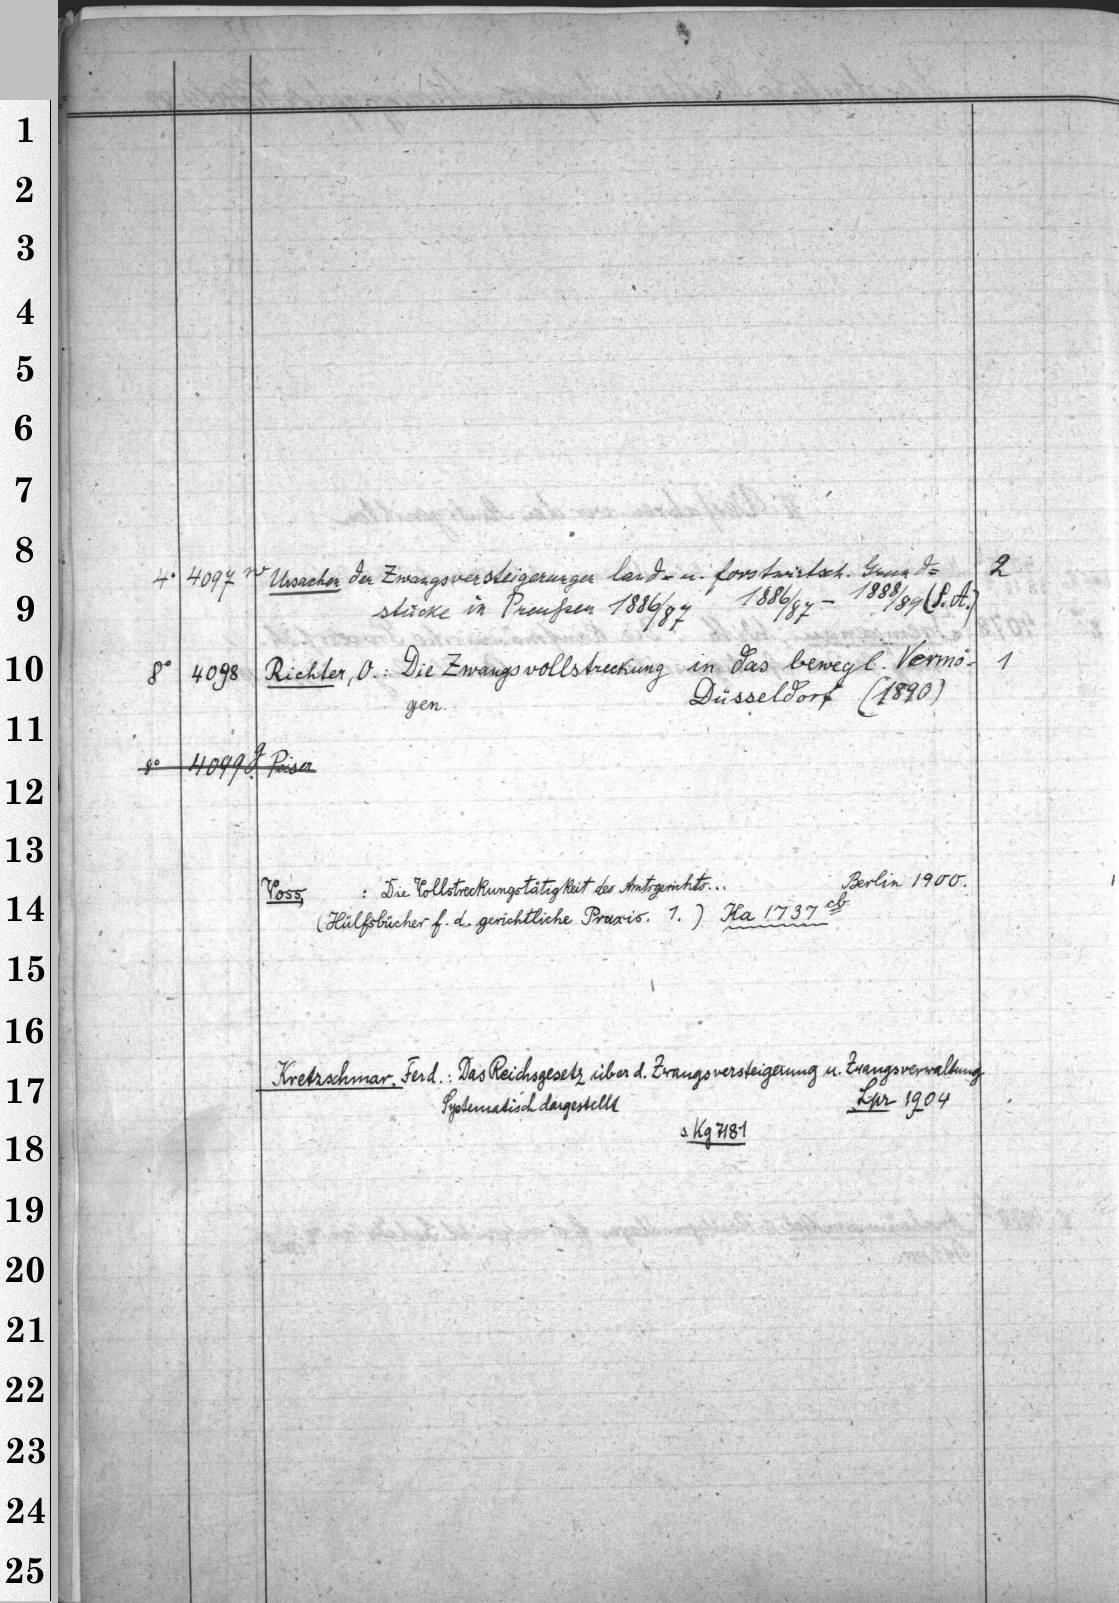 1
2
3
4
5
6
7
8
4° 4097 w Ursachen der Zwangsversteigerungen land- u. forstwirtsch. Grund= 2
9
stücke in Preußen 1886/87 1886/87 – 1888/89 (S. A.)
10
8° 4098 Richter, O.: Die Zwangsvollstreckung in das bewegl. Vermö- 1
gen. Düsseldorf (1890)
11
8° 4099 g Peiser
12
13
Voss, : Die Vollstreckungstätigkeit des Amtsgerichts... Berlin 1900.
14
(Hülfsbücher f. d. gerichtliche Praxis. 1.) Ka 1737 cb
15
16
Kretzschmar, Ferd.: Das Reichsgesetz über d. Zwangsversteigerung u. Zwangsverwaltung
17
Systematisch dargestellt Lpz 1904
s. Kg 7181
18
19
20
21
22
23
24
25